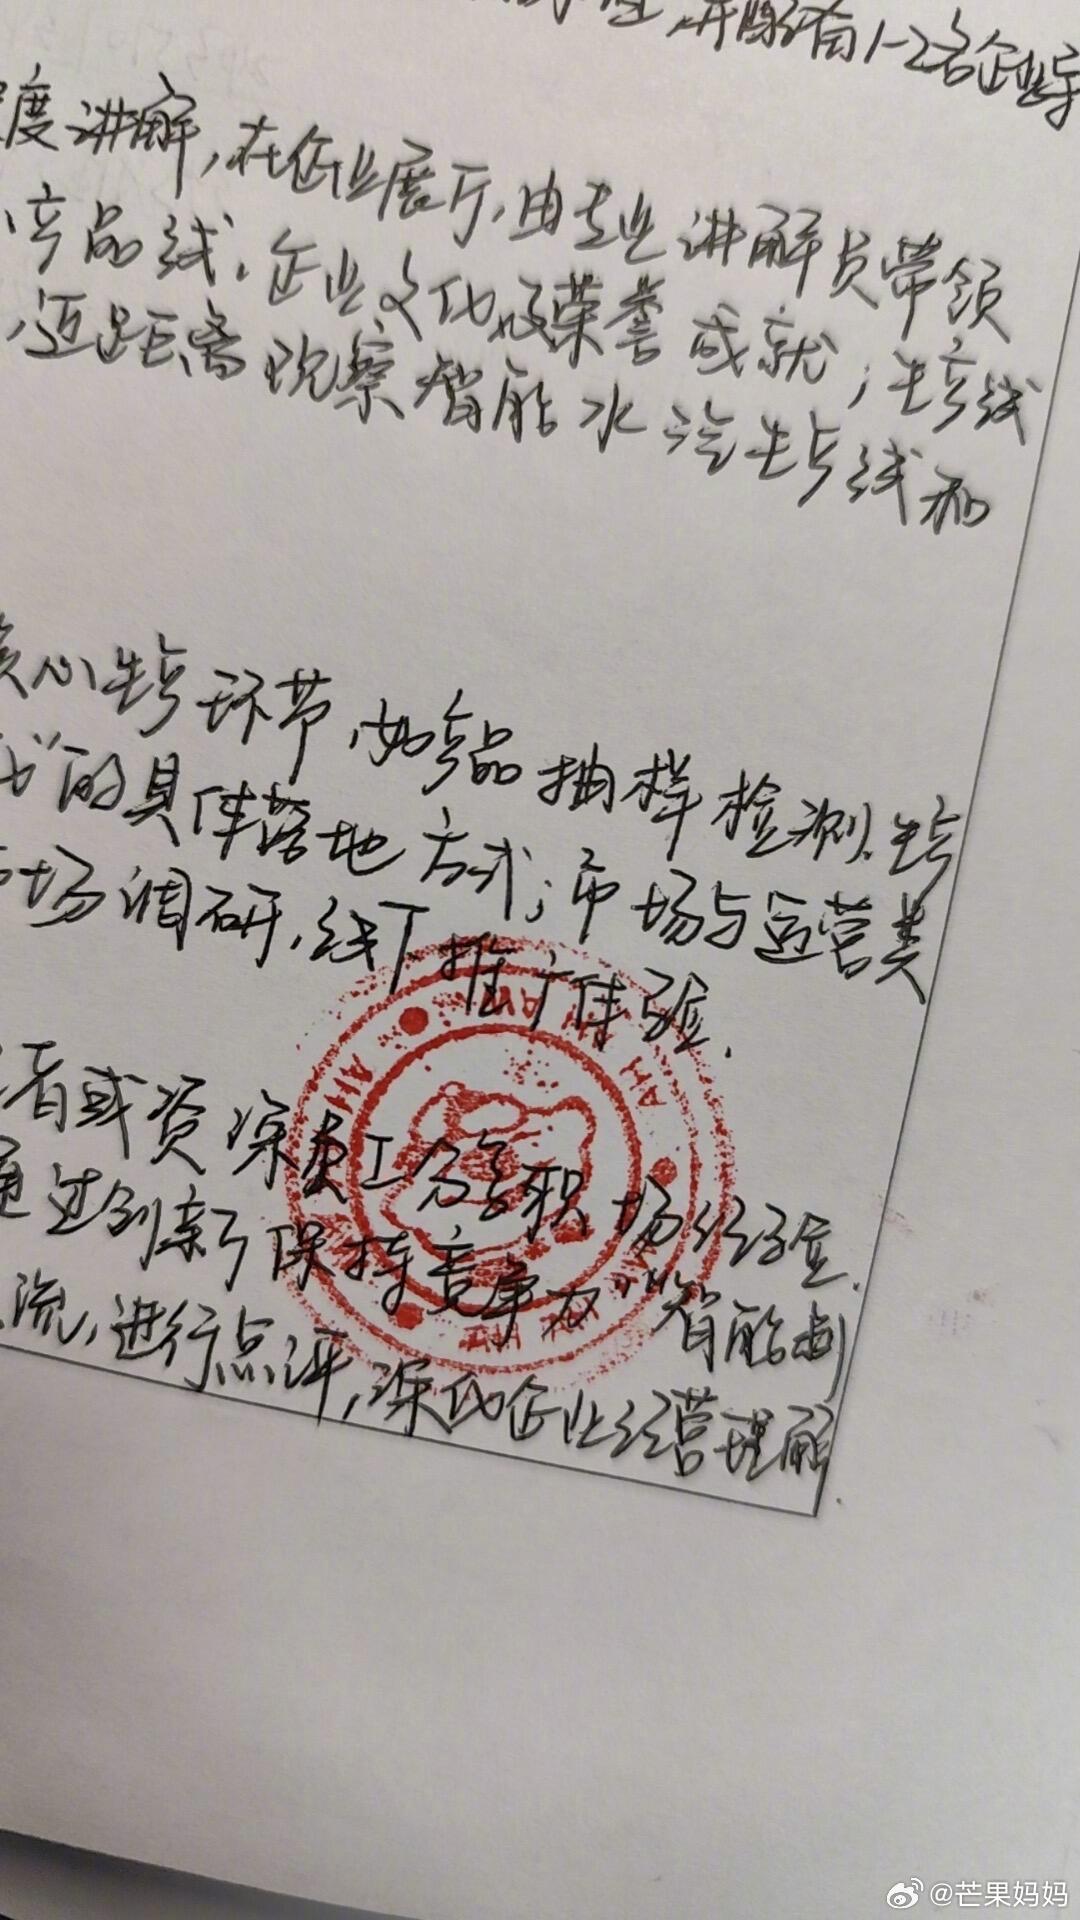 并配有1-2名企业导
度讲解,在企业展厅,由专业讲解员带领
产品线、企业文化及荣誉成就;生产线
,近距离观察智能水治生产线和
核心生产环节,如产品抽样检测、生产
”的具体落地方式;市场与运营类
市场调研,线下推广体验.
者或资深员工分享职场经验.
通过创新保持竞争力”“智能制
流,进行点评,深化企业经营理解.
AH
AH
@芒果妈妈